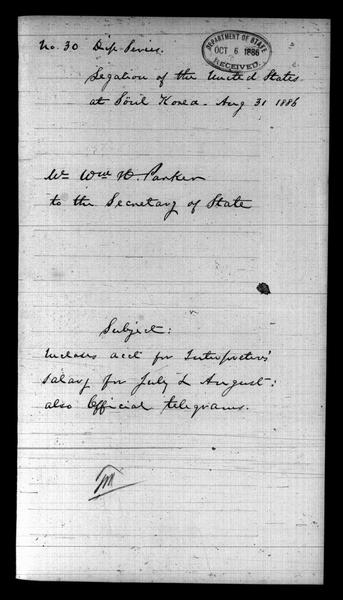 No. 30 Dip Series.
DEPARTMENT OF STATE
OCT 6 1886
RECEIVED.
Legation of the United States
at Söul Korea. Aug 31 1886
Mr Wm H. Parker
to the Secretary of State
Subject:
Incloses acct for Interpreters'
salary for July & August:
also Official telegrams.